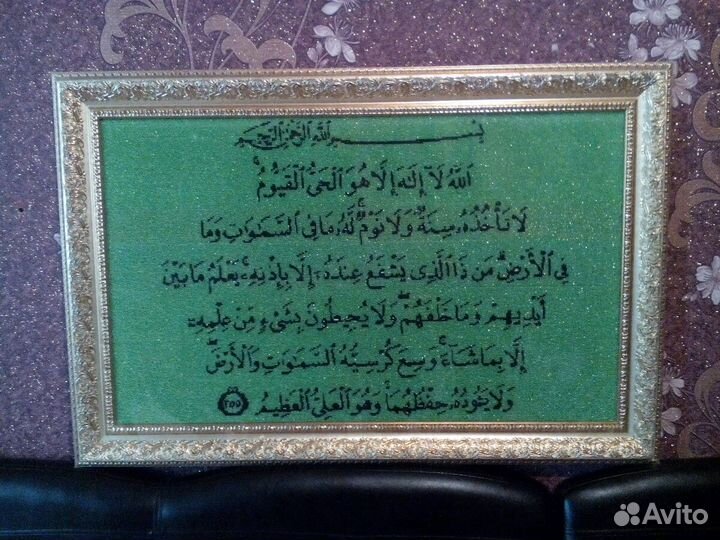 بِسْمِ ٱللَّهِ ٱلرَّحْمَٰنِ ٱلرَّحِيمِ
ٱللَّهُ لَآ إِلَٰهَ إِلَّا هُوَ ٱلْحَىُّ ٱلْقَيُّومُ ۚ
لَا تَأْخُذُهُۥ سِنَةٌ وَلَا نَوْمٌ ۚ لَّهُۥ مَا فِى ٱلسَّمَٰوَٰتِ وَمَا
فِى ٱلْأَرْضِ ۗ مَن ذَا ٱلَّذِى يَشْفَعُ عِندَهُۥٓ إِلَّا بِإِذْنِهِۦ ۚ يَعْلَمُ مَا بَيْنَ
أَيْدِيهِمْ وَمَا خَلْفَهُمْ ۖ وَلَا يُحِيطُونَ بِشَىْءٍ مِّنْ عِلْمِهِۦٓ
إِلَّا بِمَا شَآءَ ۚ وَسِعَ كُرْسِيُّهُ ٱلسَّمَٰوَٰتِ وَٱلْأَرْضَ ۖ
وَلَا يَـُٔودُهُۥ حِفْظُهُمَا ۚ وَهُوَ ٱلْعَلِىُّ ٱلْعَظِيمُ ٢٥٥
Avito